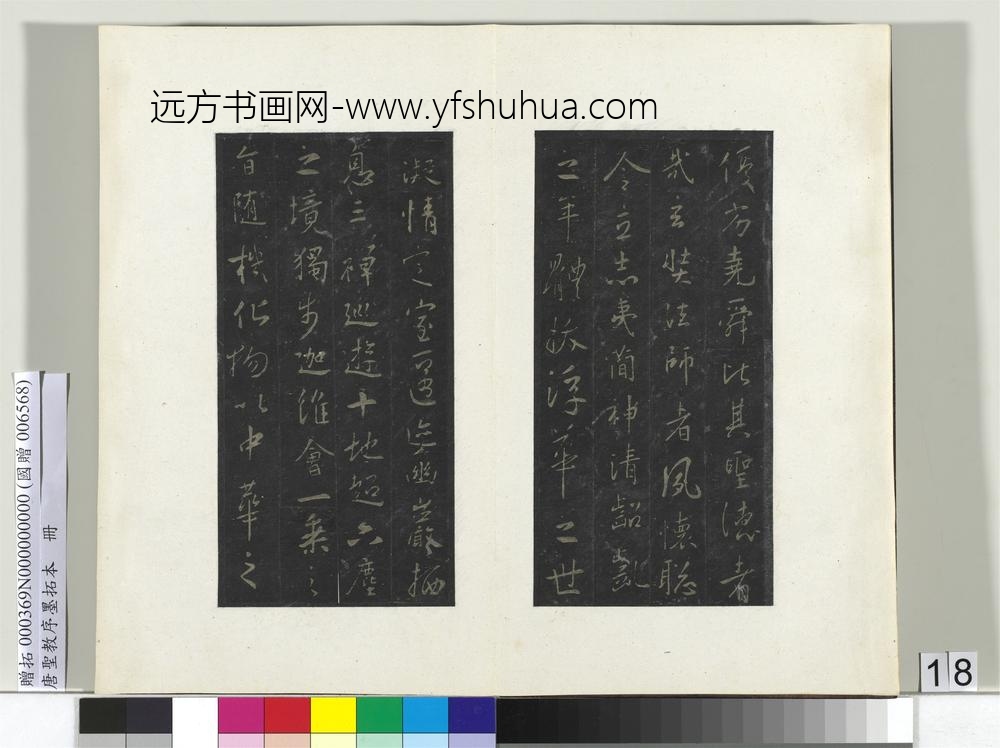 远方书画网-www.yfshuhua.com
優劣堯舜比其聖德者
哉玄奘法師者夙懷聡
令立志夷簡神清齠齔
之年體拔浮華之世
凝情定室匿迹幽巖栖
息三禪巡遊十地超六塵
之境獨步迦維會一乘之
旨随機化物以中華之
贈拓 000369N000000000 (國贈 006568)
唐聖教序墨拓本 冊
18